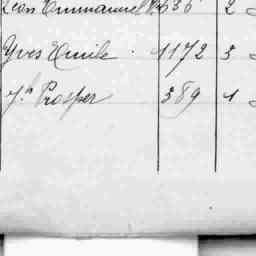 Léon Emmanuel 636 2
Yves Emile 1172 3
Jh Prosper 389 1